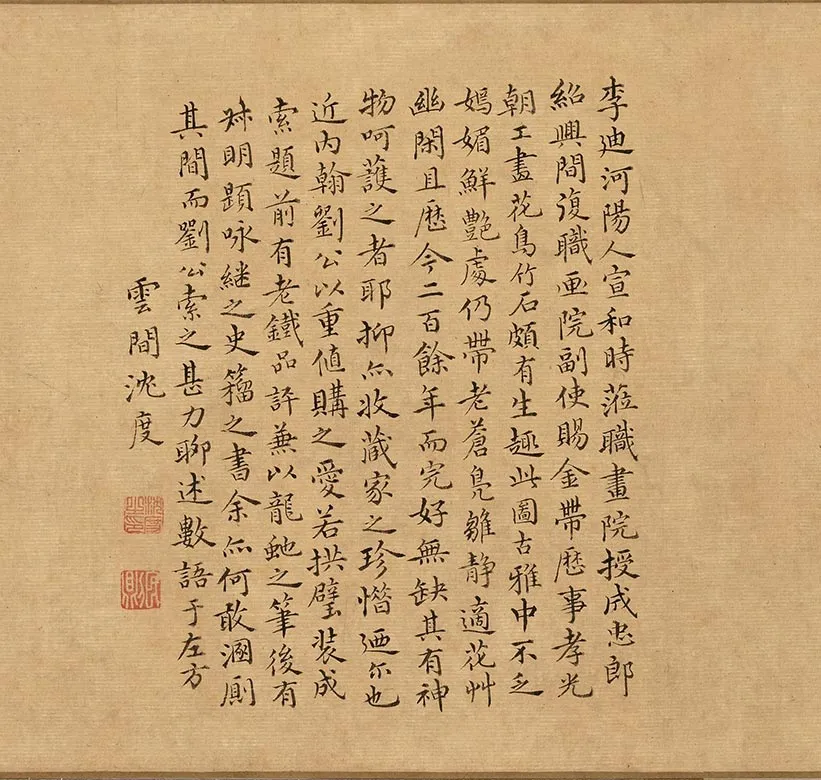 李廸河陽人宣和時蒞職畫院授成忠郎
紹興間復職画院副使賜金帶歷事孝光
朝工畫花鳥竹石頗有生趣此圖古雅中不乏
嫣媚鮮艷處仍帶老蒼鳧雛靜適花艸
幽閑且歷今二百餘年而完好無缺其有神
物呵護之者耶抑亦收藏家之珍惜廼尔也
近内翰劉公以重値購之愛若拱璧装成
索題前有老鐵品評兼以龍虵之筆後有
尗明題咏継之史籀之書余亦何敢溷厠
其間而劉公索之甚力聊述數語于左方
雲間沈度
民則